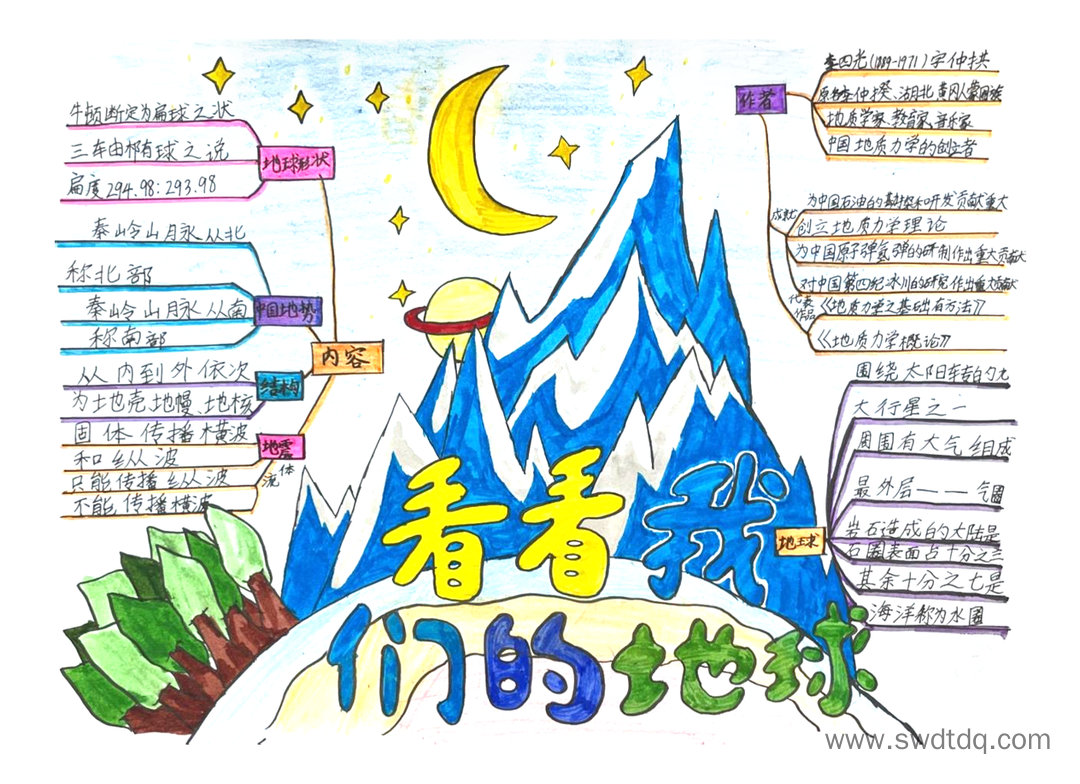 看看我
们的地球
作者
李四光(1889-1971)字仲拱
原名李仲揆、湖北黄冈人蒙古族
地质学家、教育家、音乐家
中国地质力学的创立者
成就
为中国石油的勘探和开发贡献重大
创立地质力学理论
为中国原子弹氢弹的研制作出重大贡献
对中国第四纪冰川的研究作出重大贡献
代表
作品
《地质力学之基础与方法》
《地质力学概论》
内容
地球形状
牛顿断定为扁球之状
三车由椰有球之说
扁度294.98:293.98
中国地势
秦岭山脉从北
称北部
秦岭山脉从南
称南部
结构
从内到外依次
为土地壳、地幔、地核
地震
固体传播横波
和纵波
流体
只能传播纵波
不能传播横波
地球
围绕太阳转的九
大行星之一
周围有大气组成
最外层——气圈
岩石造成的大陆是
石圈表面占十分之三
其余十分之七是
海洋称为水圈
www.swdtdq.com